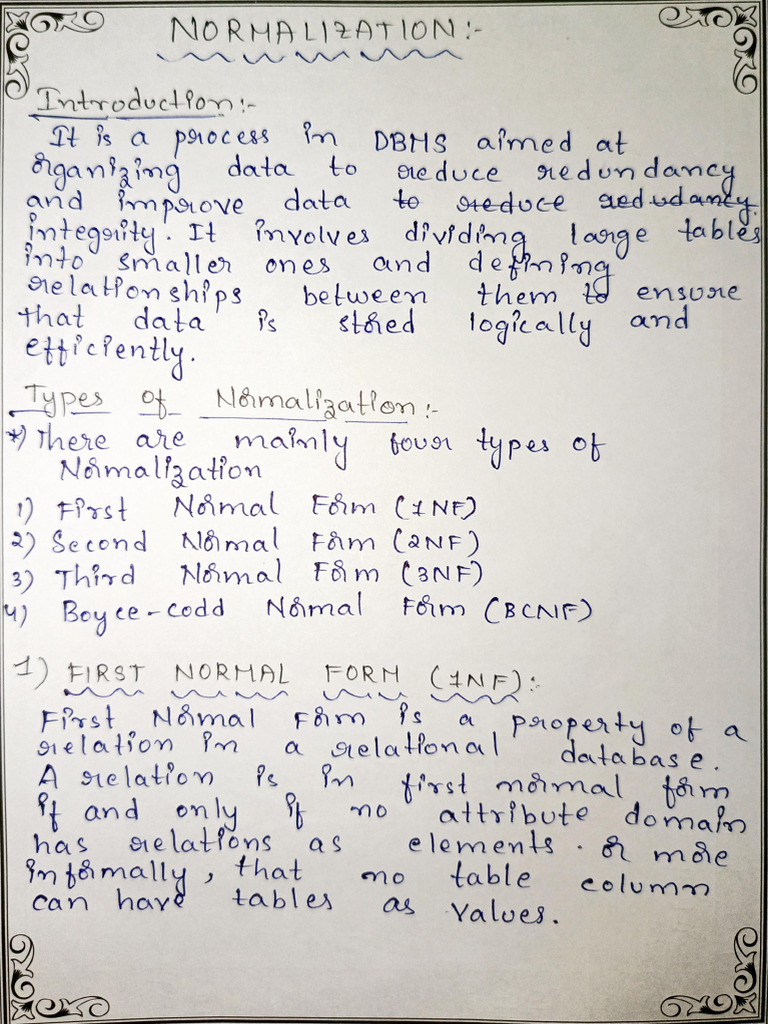 NORMALIZATION:-
Introduction:-
It is a process in DBMS aimed at
organizing data to reduce redundancy
and improve data to reduce redudancy.
integrity. It involves dividing large tables
into smaller ones and defining
relationships between them to ensure
that data is stored logically and
efficiently.
Types of Normalization:-
*) There are mainly four types of
Normalization
1) First Normal Form (1NF)
2) Second Normal Form (2NF)
3) Third Normal Form (3NF)
4) Boyce-codd Normal Form (BCNF)
1) FIRST NORMAL FORM (1NF):-
First Normal Form is a property of a
relation in a relational database.
A relation is in first normal form
if and only if no attribute domain
has relations as elements. or more
informally, that no table column
can have tables as values.